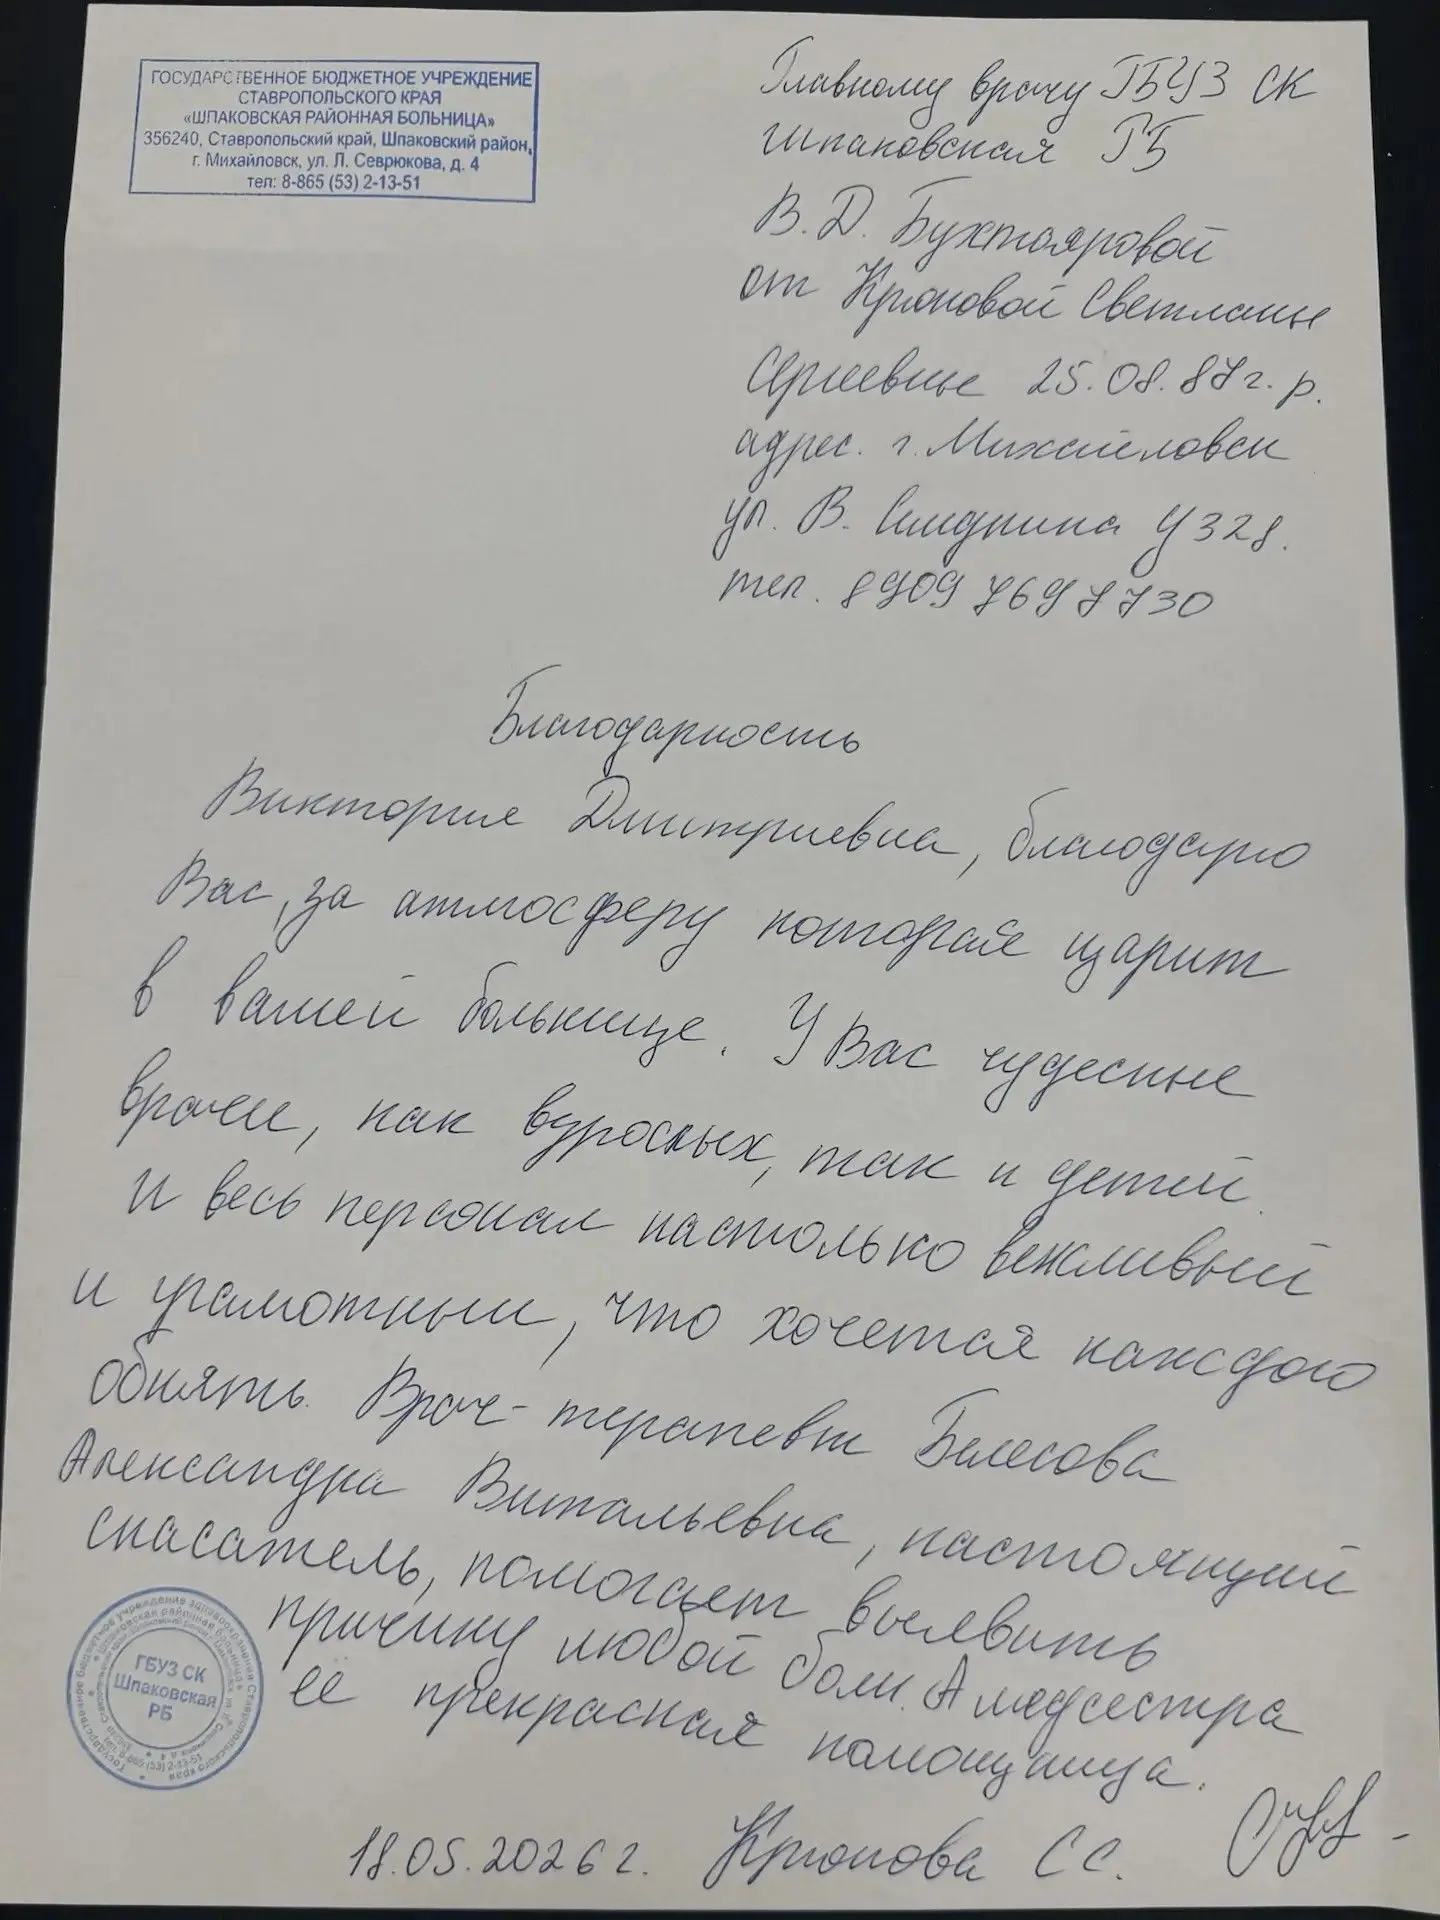 ГОСУДАРСТВЕННОЕ БЮДЖЕТНОЕ УЧРЕЖДЕНИЕ
СТАВРОПОЛЬСКОГО КРАЯ
«ШПАКОВСКАЯ РАЙОННАЯ БОЛЬНИЦА»
356240, Ставропольский край, Шпаковский район,
г. Михайловск, ул. Л. Севрюкова, д. 4
тел: 8-865 (53) 2-13-51
Главному врачу ГБУЗ СК
Шпаковская РБ
В. Д. Бухтояровой
от Крюковой Светланы
Сергеевны 25.08.87 г. р.
адрес. г. Михайловск
ул. В. 328.
тел. 8909 7697730
Благодарность
Виктория Дмитриевна, благодарю
Вас, за атмосферу которая царит
в вашей больнице. У Вас чудесные
врачи, как взрослых, так и детей.
И весь персонал настолько вежливый
и грамотный, что хочется каждого
обнять. Врач-терапевт
Александра Витальевна, настоящий
спасатель, помогает выявить
причину любой боли. А медсестра
её прекрасная помощница.
ГБУЗ СК
Шпаковская
РБ
18.05.2026 г. Крюкова С С.